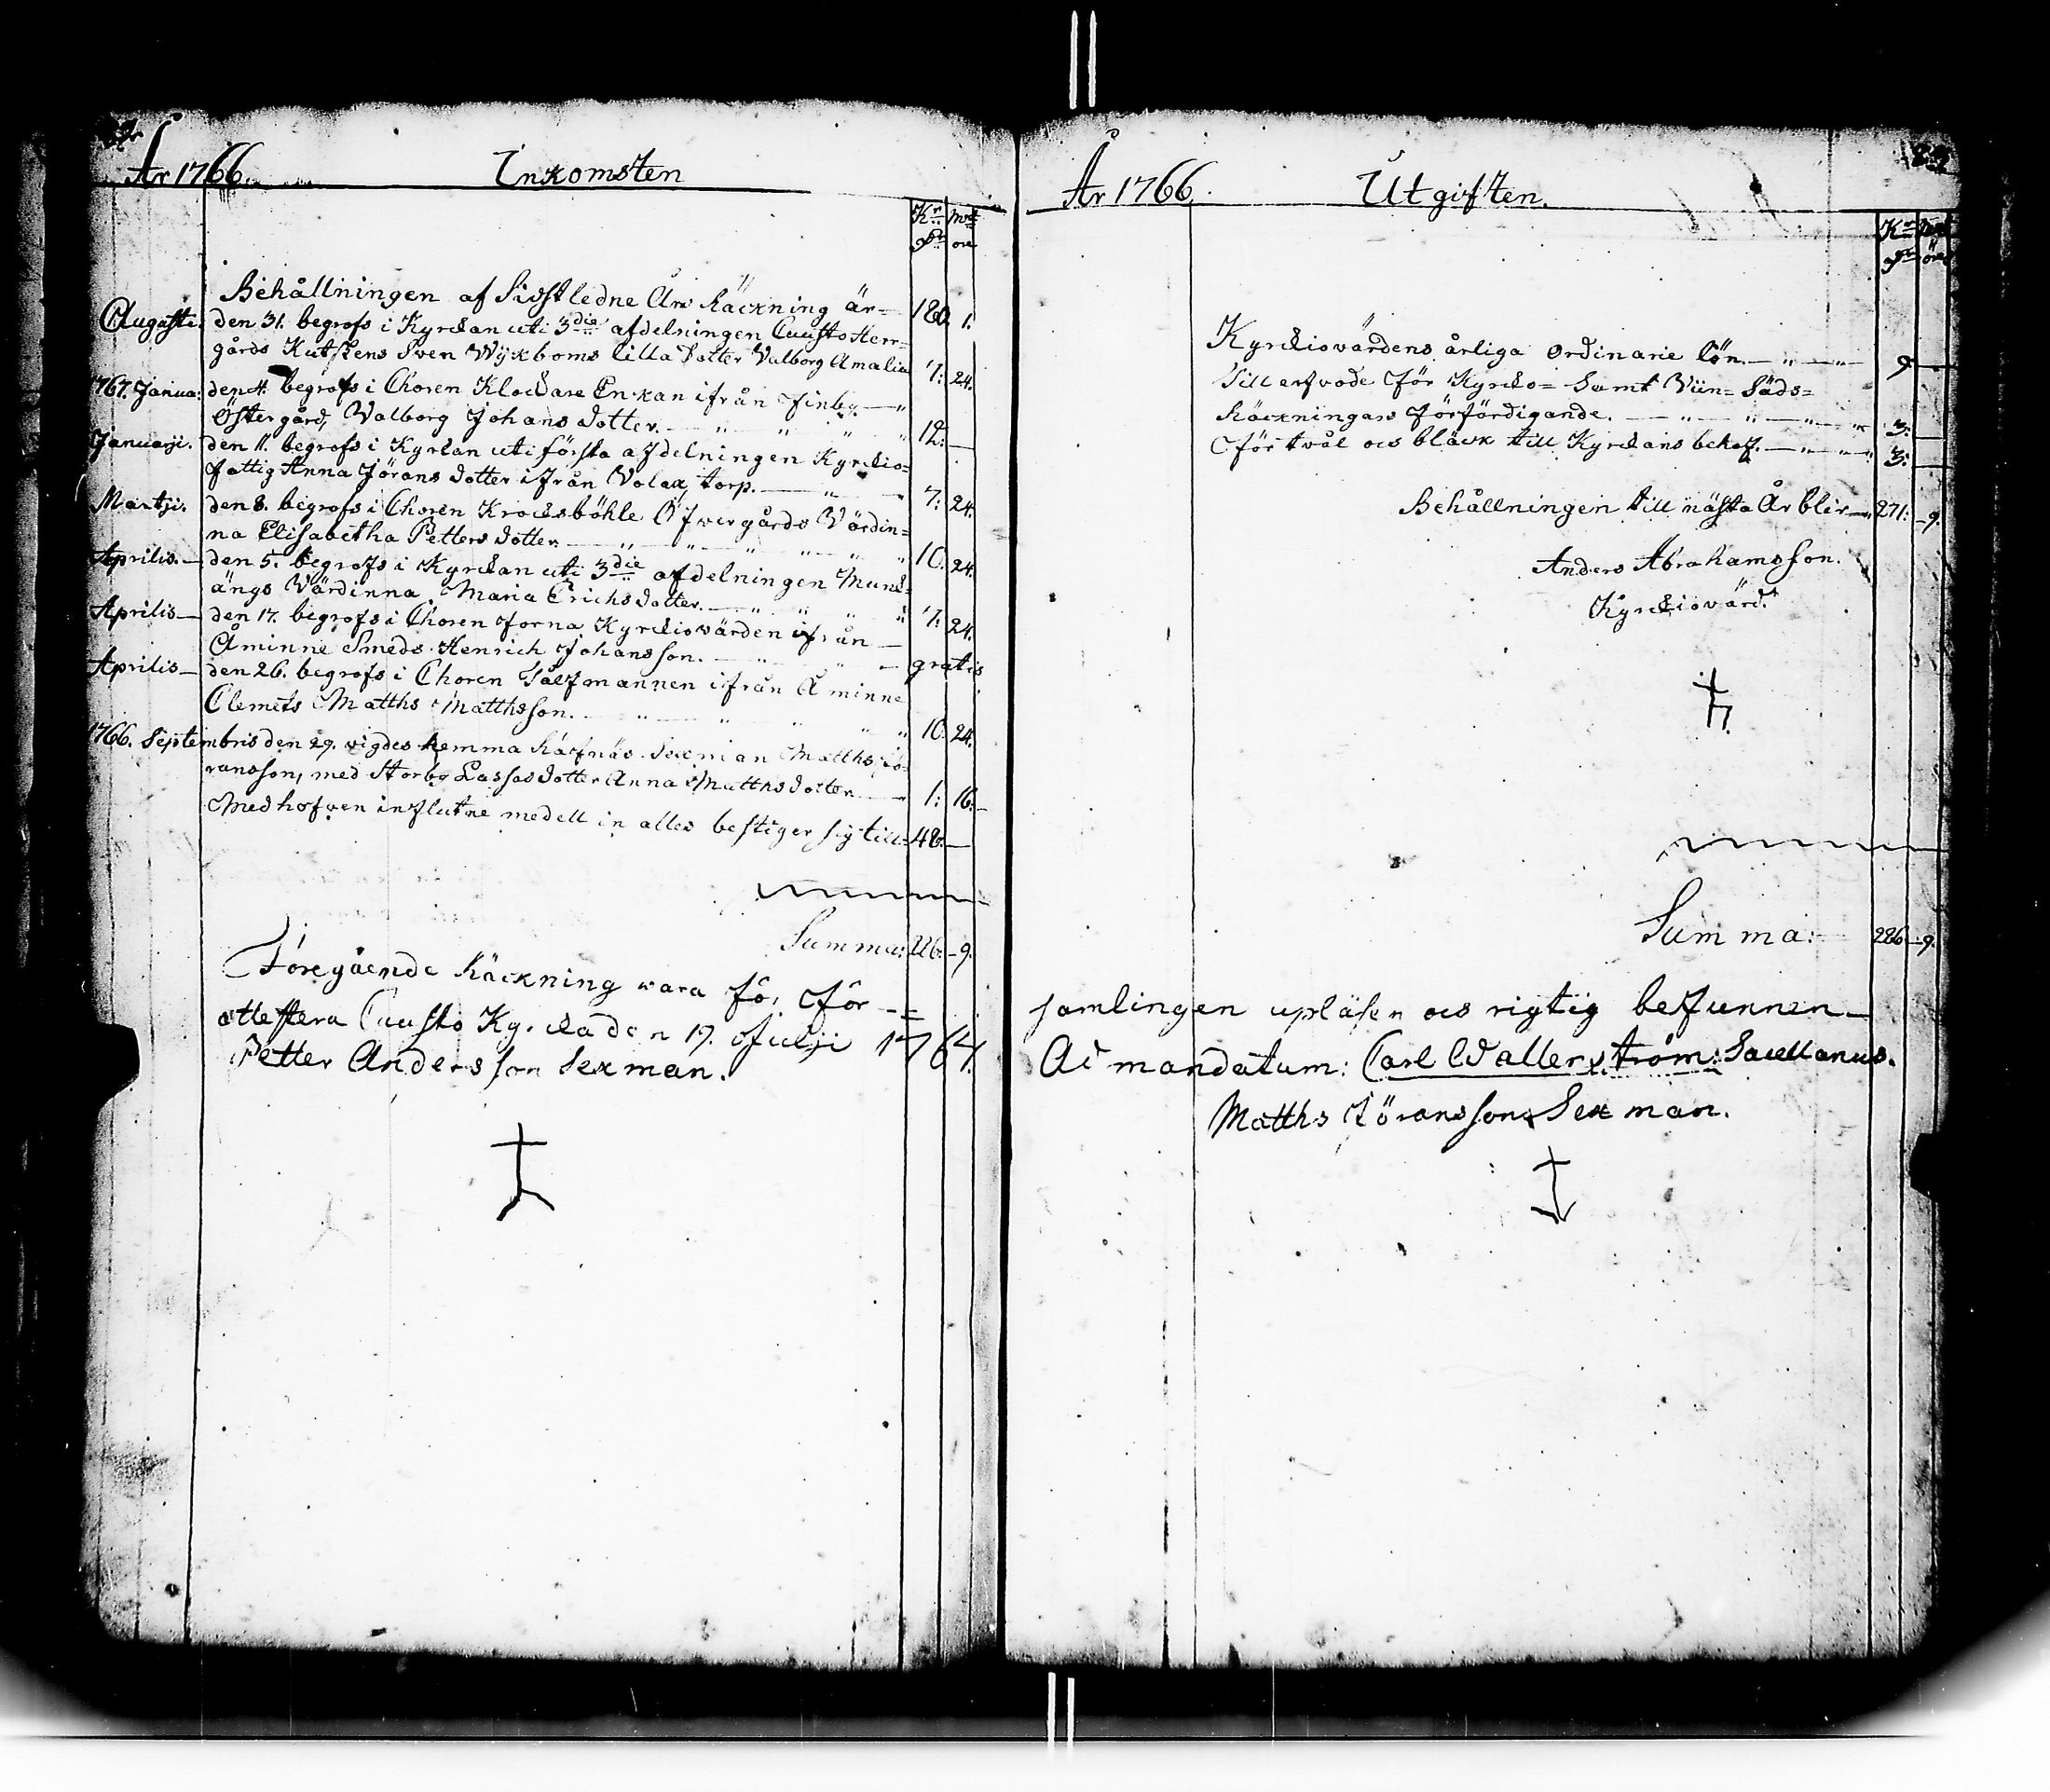 År 1766. Inkomsten
Kr Mt
Dr öre
Behållningen af Sidstledne Års Räckning är= 180. 1.
Augusti. den 31. begrofs i Kyrckan uti 3die afdelningen Cuusto Herr=
gårds Kutskens Sven Wÿkboms lilla Dotter Valborg Amalia 7: 24.
1767. Janua: den 4. begrofs i Choren Klockare Enkan ifrån Finby
Östergård, Valborg Johans dotter. 12: —
Januarji. den 11. begrofs i Kyrkan uti första afdelningen Kyrckio=
fattig Anna Jörans dotter ifrån Volax torp. 7: 24.
Martji. den 8. begrofs i Choren Krocksböhle Öfvergårds Värdin=
na Elisabetha Petters dotter. 10. 24.
Aprilis.— den 5. begrofs i Kyrckan uti 3die afdelningen Munck=
ängs Värdinna, Maria Erichs dotter. 7: 24.
Aprilis— den 17. begrofs i Choren forna Kyrckiovärden ifrån —
Åminne Smeds Henrich Johansson. — gratis
Aprilis— den 26. begrofs i Choren Tolfmannen ifrån Åminne
Clemets Matths Matthsson. 10. 24.
1766. Septembris den 29. vigdes hemma Räfnäs Sexman Matths Jö=
ransson, med Storby Lassas dotter Anna Matths dotter 1: 16.
Med hofven influtne medell in alles bestiger sig till= 48. —
Summa: 286. 9.
Föregående Räckning vara så, för —
attestera Cuusto Kyrcka den 19. Julji 1767.
Petter Andersson Sexman.
År 1766. Utgiften.
Kr
Dr öre
Kyrckiovärdens årliga ordinarie lön. 9 —
Till arfvode för Kyrcko= Samt Viin= Säds=
Räckningars förfärdigande. 3: —
För tvål och bläck till Kyrckans behof. 3: —
Behållningen till nästa År blir 271: 9.
Anders Abrahamsson.
Kyrckiovärd.
Summa: 286. 9.
samlingen upläsen och rigtig befunnen—
Ad mandatum: Carl Wallerström: Sacellanus.
Matths Jöransson, Sexman.